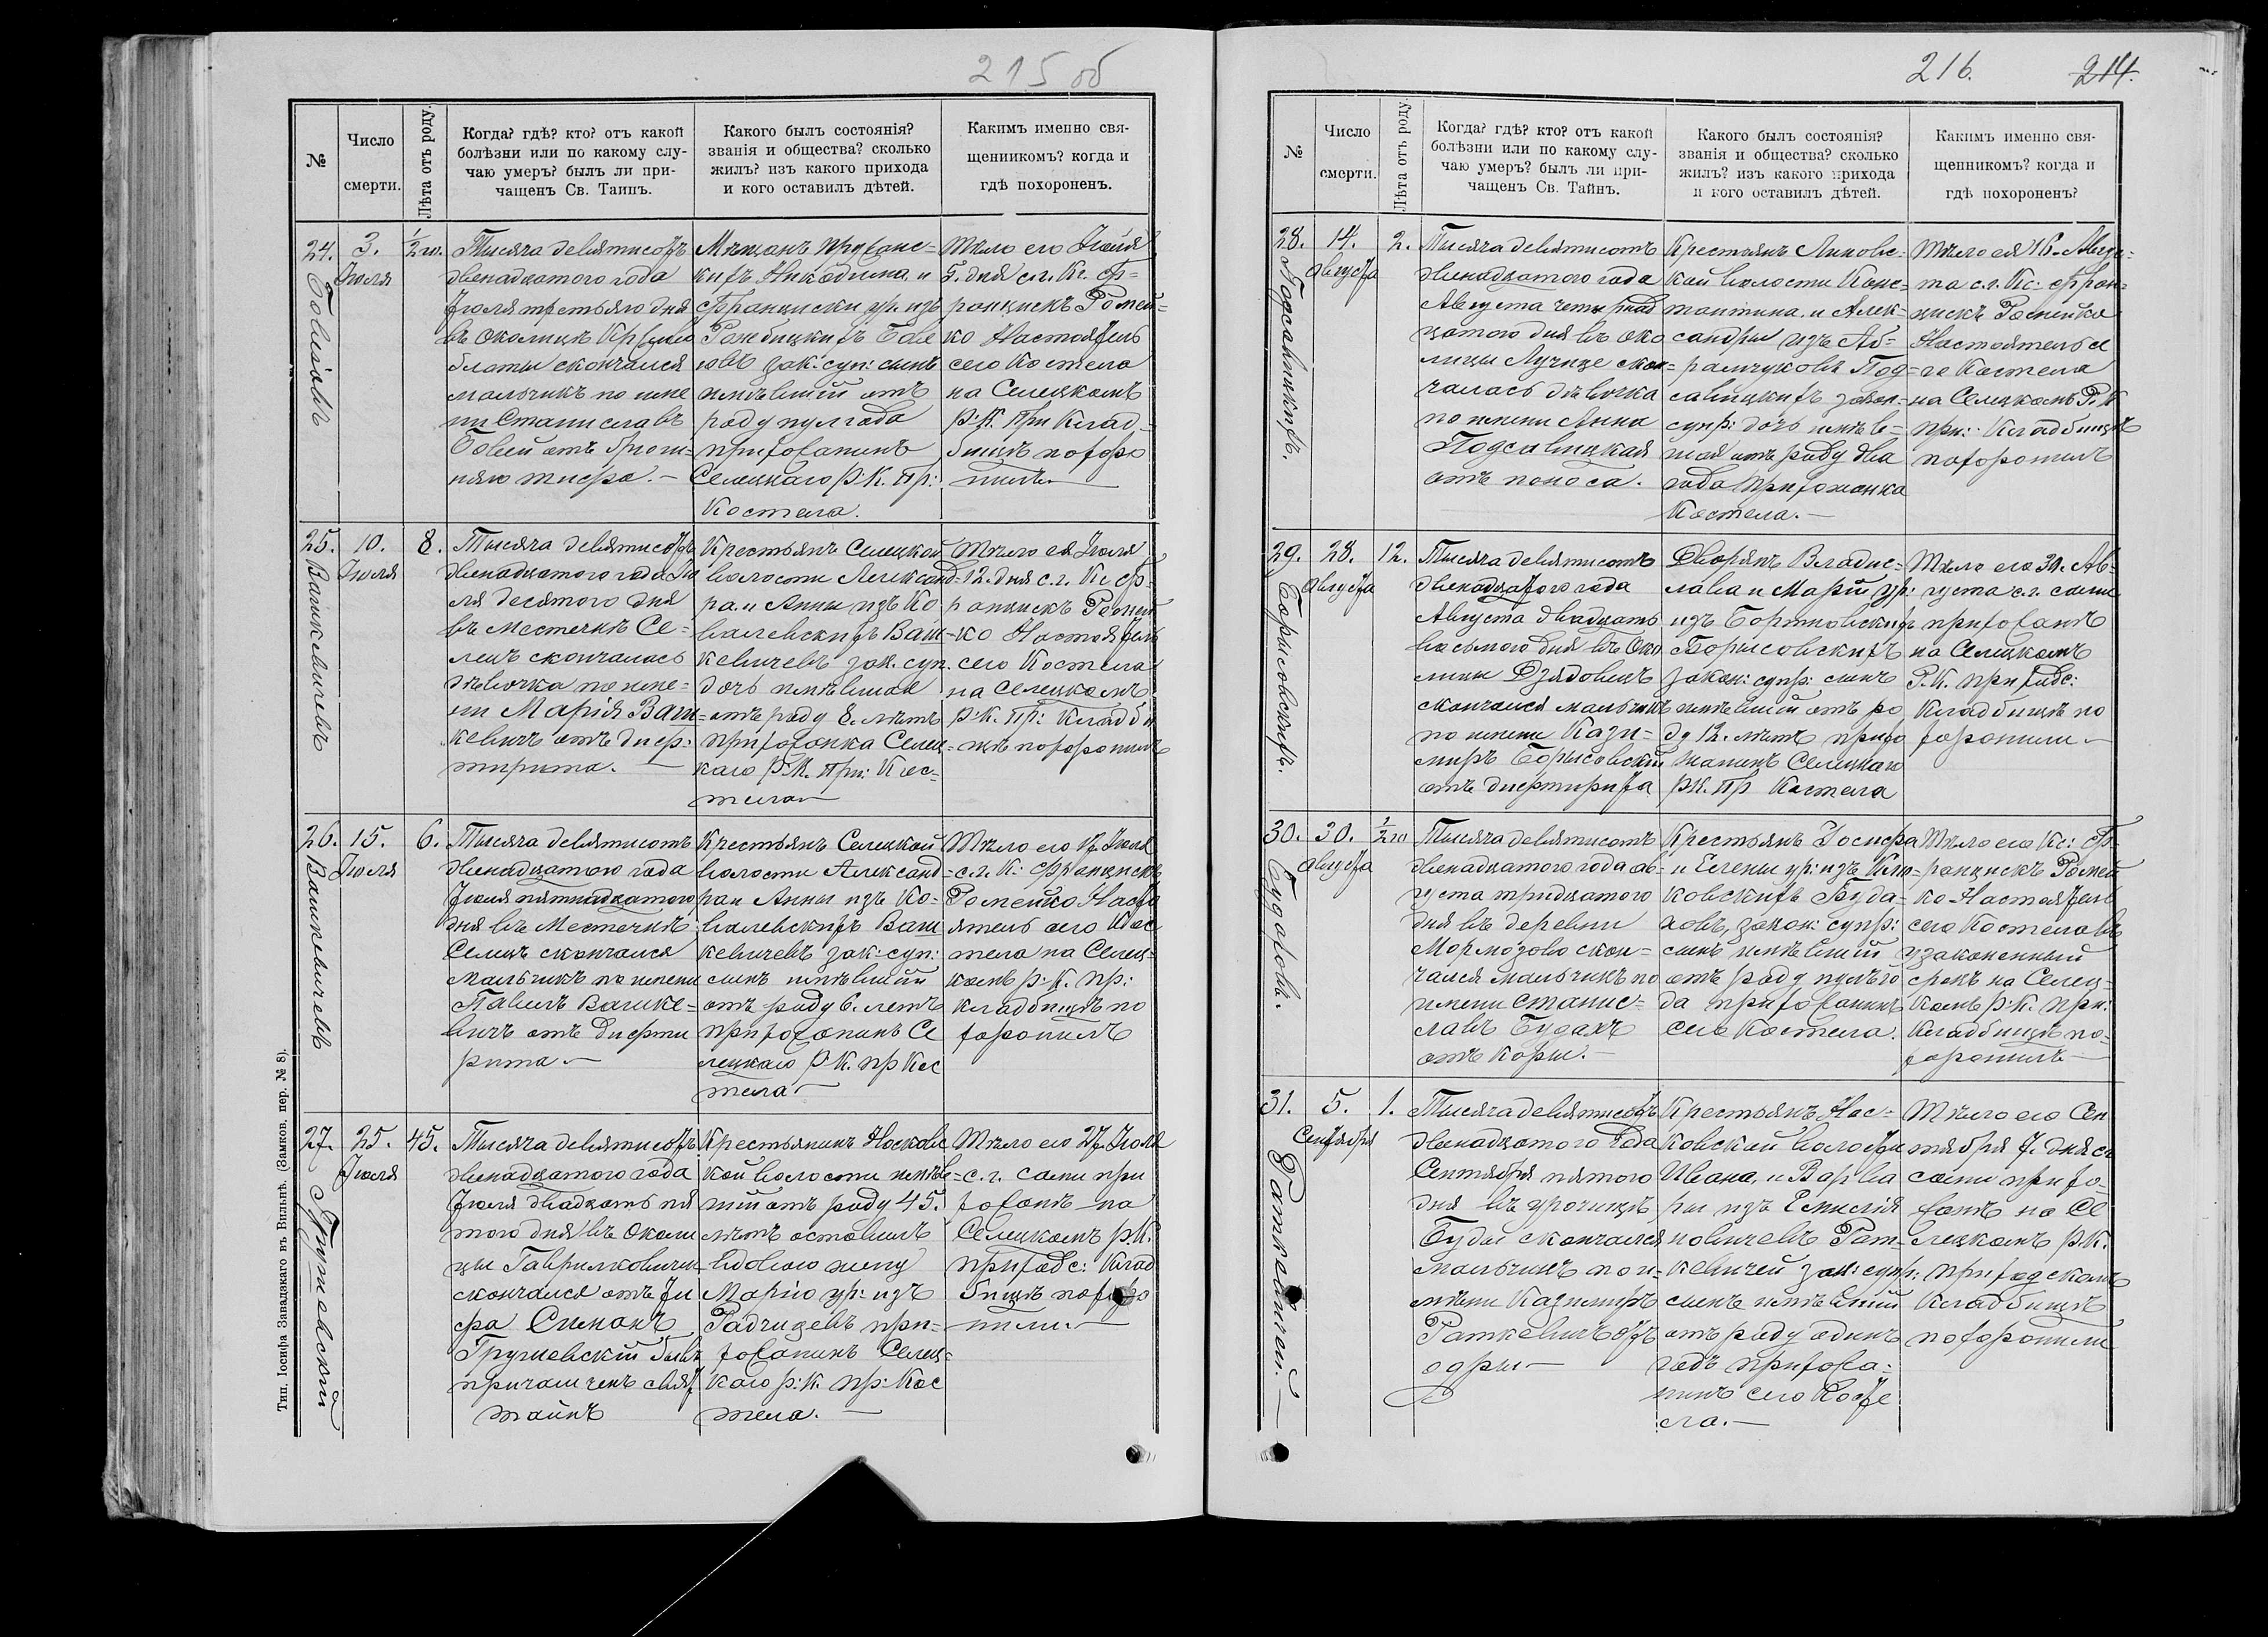 215 об
№
Число
смерти.
Лѣта отъ роду.
Когда? гдѣ? кто? отъ какой
болѣзни или по какому слу-
чаю умеръ? былъ ли при-
чащенъ Св. Таинъ.
Какого былъ состоянія?
званія и общества? сколько
жилъ? изъ какого прихода
и кого оставилъ дѣтей.
Какимъ именно свя-
щенникомъ? когда и
гдѣ похороненъ.
24.
3.
Іюля
½ го.
Тысяча девятисотъ
двенадцатого года
Іюля третьяго дня
въ околицѣ
блоты скончался
мальчикъ по име
ни Станиславъ
отъ брюш-
няго тифа. —
Мѣщанъ
кихъ Никодима и
Франциски ур: изъ
закъ: суп: сынъ
имѣвшій отъ
роду пулгода
прихожанинъ
Селецкаго Р.К. Пр:
Костела.
Тѣло его Іюля
5. дня с.г. Кс. Ф-
ранцискъ Ромей-
ко Настоятель
сего Костела
на Селецкомъ
Р.К. При Клад-
бищѣ похоро
нилъ —
25.
10.
Іюля
8.
Вашкевичевъ
Тысяча девятисотъ
двенадцатого года Ію
ля десятого дня
въ Местечкѣ Се-
лецъ скончалась
дѣвочка по име-
ни Марія Ваш-
кевичъ отъ диф-
тирита. —
Крестьянъ Селецкой
волости Александ-
ра и Анны изъ Ко
валевскихъ Ваш-
кевичевъ зак. суп.
дочь имѣвшая
отъ роду 8. лѣтъ
прихожанка Селец-
каго Р.К. При: Кос-
тела —
Тѣло ея Іюля
12. дня с.г. Кс Ф-
ранцискъ Ромей
ко Настоятель
сего Костела
на Селецкомъ
Р.К. Пр: Кладби
щѣ похоронилъ
26.
15.
Іюля
6.
Вашкевичевъ
Тысяча девятисотъ
двенадцатого года
Іюля пятнадцатого
дня въ Местечкѣ
Селецъ скончался
мальчикъ по имени
Павелъ Вашке-
вичъ отъ Дифти
рита —
Крестьянъ Селецкой
волости Александ-
ра и Анны изъ Ко-
валевскихъ Ваш
кевичевъ зак: суп:
сынъ имѣвшій
отъ роду 6. летъ
прихожанинъ Се
лецкаго Р.К. пр Кос
тела —
Тѣло его 17 Іюля
с.г. К: Францискъ
Ромейко Насто
ятель сего Кос
тела на Селец-
комъ р.К. пр:
кладбищѣ по
хоронилъ
27.
25.
Іюля
45.
Грушевскій
Тысяча девятисотъ
двенадцатого года
Іюля двадцать пя
того дня въ Околи
цы Гаврилковичи
скончался отъ ти
фа Симонъ
Грушевскій бывъ
причащенъ свят
тайнъ
Крестьянинъ Носковс
кой волости имѣв-
шій отъ роду 45.
лѣтъ оставилъ
вдовою жену
Марію ур: изъ
при-
хожанинъ Селец-
каго р:к. пр: Кос
тела. —
Тѣло его 27 Іюля
с.г. сами при
хожанѣ на
Селецкомъ Р.К.
приходс: Клад
бищѣ похоро
нили. —
Тип. Іосифа Завадзкаго въ Вильнѣ. (Замков. пер. № 8).
216.
214.
№
Число
смерти.
Лѣта отъ роду.
Когда? гдѣ? кто? отъ какой
болѣзни или по какому слу-
чаю умеръ? былъ ли при-
чащенъ Св. Тайнъ.
Какого былъ состоянія?
званія и общества? сколько
жилъ? изъ какого прихода
и кого оставилъ дѣтей.
Какимъ именно свя-
щенникомъ? когда и
гдѣ похороненъ?
28.
14.
августа
2.
Подсавицкихъ.
Тысяча девятисотъ
двенадцатого года
Августа четырнад
цатого дня въ око
лицы Лучице скон-
чалась дѣвочка
по имени Анна
Подсавицкая
отъ поноса.
Крестьянъ
кой волости Конс-
тантина и Алек-
сандры изъ Аб-
рамчуковъ Под-
савицкихъ закон-
супр: дочь имѣв-
шая отъ роду два
года прихожанка
Костела. —
Тѣло ея 16. Авгус-
та с.г. Кс: Фран-
цискъ Ромейко
Настоятель се
го Костела
на Селецкомъ Р.К
при: Кладбищѣ
похоронилъ
29.
28.
августа
12.
Борисовскихъ.
Тысяча девятисотъ
двенадцатого года
Августа двадцать
восьмого дня въ Око
лицы Дзядовичъ
скончался мальчикъ
по имени Кази-
миръ Борысовскій
отъ дифтирита
Дворянъ Владис-
лава и Маріи ур:
изъ
Борысовскихъ
закон: супр: сынъ
имѣвшій отъ ро
ду 12. лѣтъ прихо
жанинъ Селецкаго
Р.К. Пр Костела
Тѣло его 30. Ав-
густа с.г. сами
прихожанѣ
на Селецкомъ
Р.К. приходс:
Кладбищѣ по
хоронили —
30.
30.
августа
½ го
Будаховъ.
Тысяча девятисотъ
двенадцатого года ав-
густа тридцатого
дня въ деревни
Мормозово скон-
чался мальчикъ по
имени Станис-
лавъ Будахъ
отъ кори. —
Крестьянъ Іосифа
и Елены ур: изъ
ковскихъ Буда-
ховъ, закон: супр:
сынъ имѣвшій
отъ роду пулъго
да прихожанинъ
сего Костела.
Тѣло его Кс: Ф-
ранцискъ Ромей
ко Настоятель
сего Костела въ
узаконенный
срокъ на Селец-
комъ Р.К. при:
Кладбищѣ по-
хоронилъ —
31.
5.
Сентября
1.
Раткевичей. —
Тысяча девятисотъ
двенадцатого года
Сентября пятого
дня въ урочищѣ
Буды скончался
мальчикъ по и-
мѣни Казимиръ
Раткевичъ отъ
одры —
Крестьянъ Нос-
ковской волости
Ивана, и Варва
ры изъ
новичевъ Рат-
кевичей зак: супр:
сынъ имѣвшій
отъ роду одинъ
годъ прихожа-
нинъ сего Косте
ла. —
Тѣло его Сен
тября 7. дня с.г
сами прихо-
жанѣ на Се
лецкомъ Р.К.
приходскомъ
Кладбищѣ
похоронили